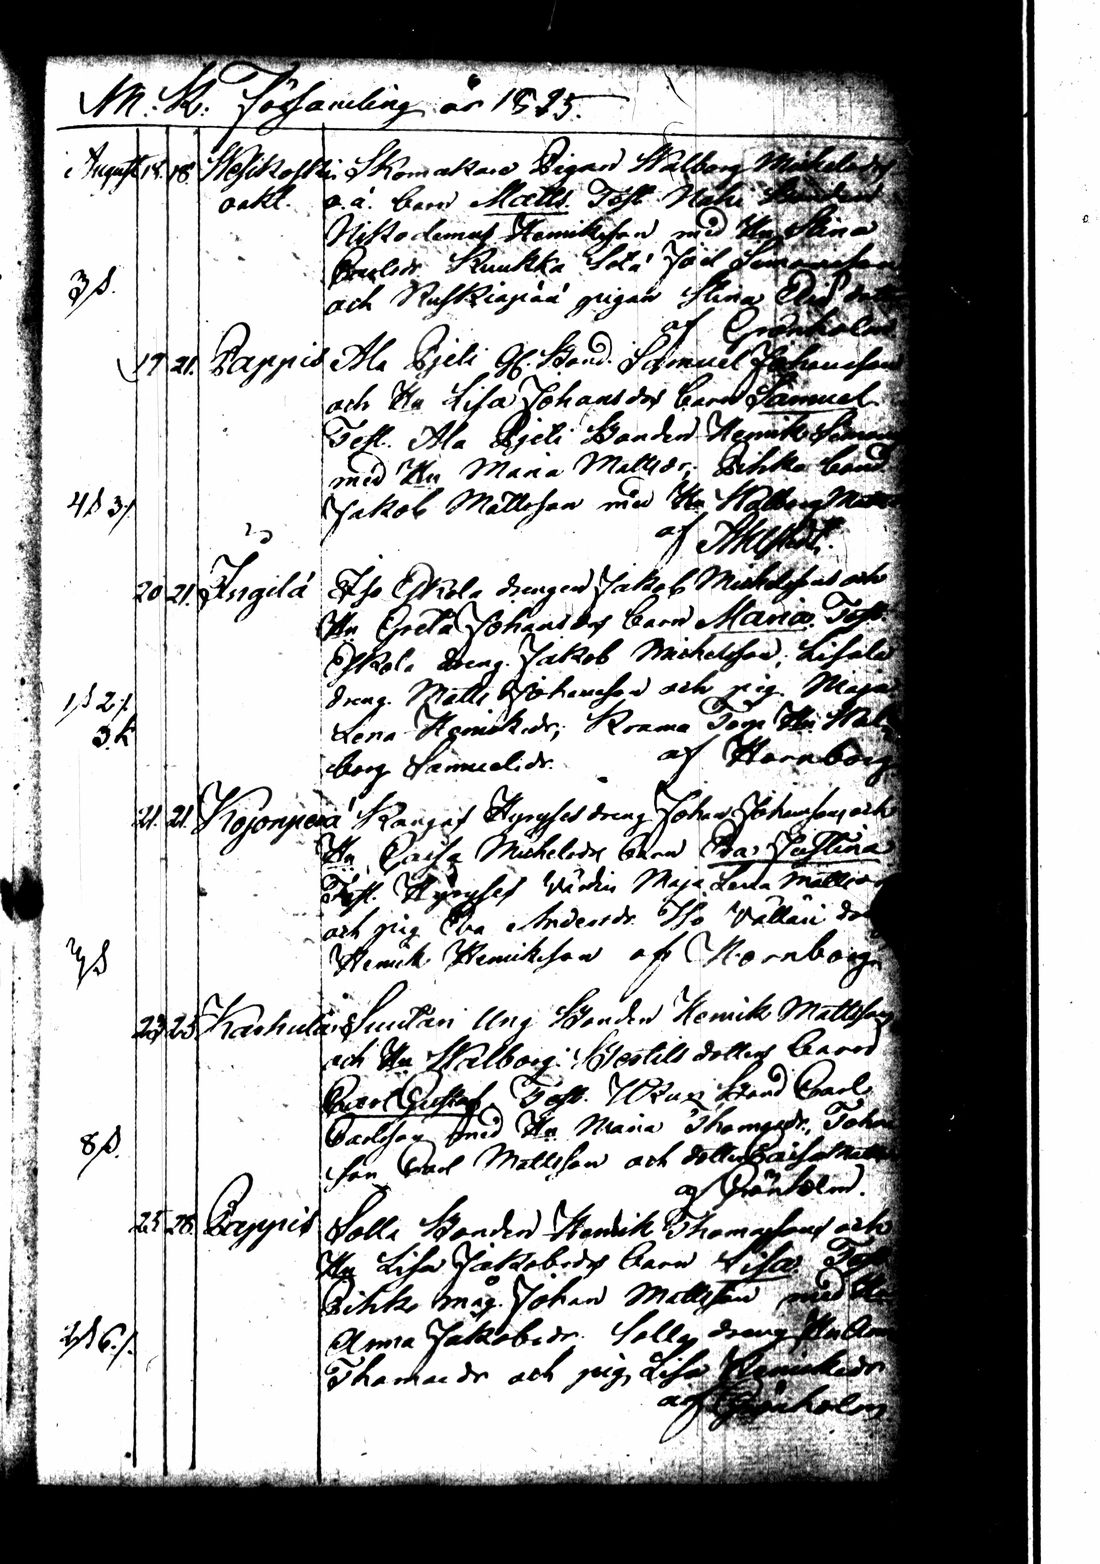 M. K. Församling år 1825.
August 15. 18. Wesikoski Skomakare Pigans Walborg Michelsdrs
o.ä. barn Matts. Test. Nahi Bonden
Nikodemus Henriksson med Hu Stina
Carlsdr. Kuukka Sold Joel Simonsson
3 s. och Ruskiapää pigan Stina
af Grönholm
17 21. Pappis Ala Pjeli Bond. Samuel Johansson
och Hu Lisa Johansdrs barn Samuel.
Test. Ala Pjeli Bonden Henrik Simons
med Hu Maria Mattsdr, Pihka bond.
4 s 3 Jakob Mattsson med Hu Walborg Matts
af Ahlstedt.
20. 21. Ingilä Iso Eskola drengen Jakob Michelssons och
Hu Greta Johansdrs barn Maria. Test.
Eskola dreng. Jakob Michelsson, Lisala
dreng. Matts Johansson och pig. Maja
1 s 2 Lena Henriksdr; Krama Torp Hu Wal
3 k borg Samuelsdr. af Hornborg
21. 21. Kojonperä Kangas Hyrysses dreng Johan Johanssons och
Hu Caisa Michelsdrs barn Eva Justina
Test. Hyrysses Värdin Maja Lena Mattsdr
och pig. Eva Andersdr. Iso Välläri dr
Henrik Henriksson af Hornborg
23 25 Karhula Suutari Ung Bonden Henrik Mattssons
och Hu Walborg Bertils dotters barn
Carl Gustaf. Test. Bond Carl
Carlsson med Hu Maria Thomasdr,
8 s. son Carl Mattsson och dotter Caisa Matts
af Grönholm.
25. 28. Pappis Solla Bonden Henrik Thomassons och
Hu Lisa Jakobsdrs barn Lisa. Test.
Pihka måg. Johan Mattsson med Hu
2 s 6. Anna Jakobsdr. Solla dreng Hu Ann
Thomasdr och pig. Lisa Henriksdr
af Grönholm